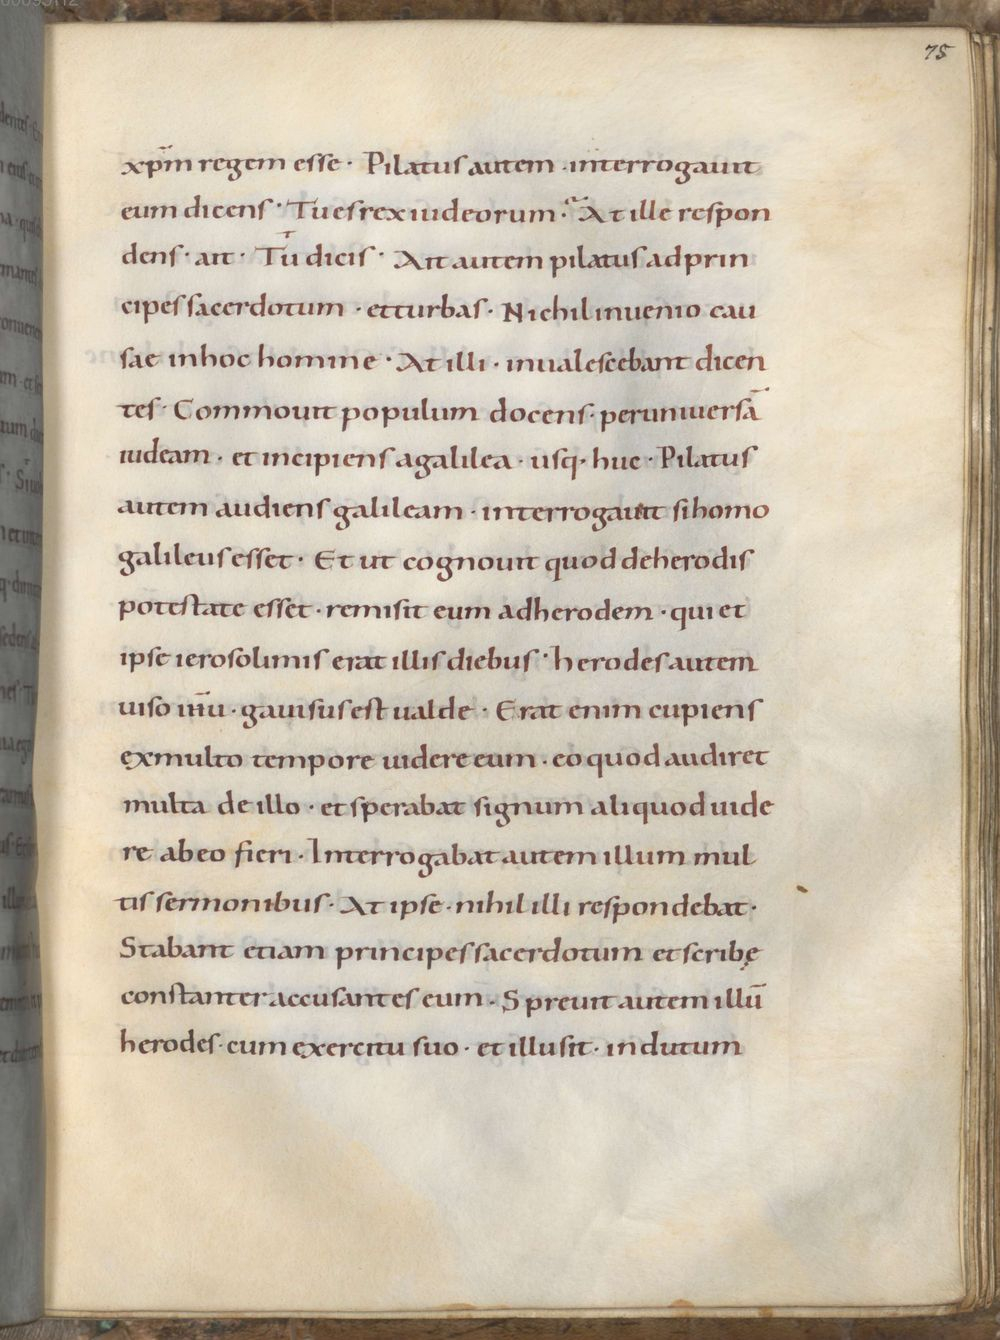 75
xp̄m regem esse · Pilatus autem · interrogauit
eum dicens · Tu es rex iudeorum · At ille respon
dens · ait · Tu dicis · Ait autem pilatus ad prin
cipes sacerdotum · et turbas · Nichil inuenio cau
sae in hoc homine · At illi · inualescebant dicen
tes · Commouit populum docens · per uniuersā
iudeam · et incipiens a galilea · usq· huc · Pilatus
autem audiens galileam · interrogauit si homo
galileus esset · Et ut cognouit quod de herodis
potestate esset · remisit eum ad herodem · qui et
ipse ierosolimis erat illis diebus · herodes autem
uiso ih̄u · gauisus est ualde · Erat enim cupiens
ex multo tempore uidere eum · eo quod audiret
multa de illo · et sperabat signum aliquod uide
re ab eo fieri · Interrogabat autem illum mul
tis sermonibus · At ipse · nihil illi respondebat ·
Stabant etiam principes sacerdotum et scribę
constanter accusantes eum · Spreuit autem illū
herodes · cum exercitu suo · et illusit · indutum